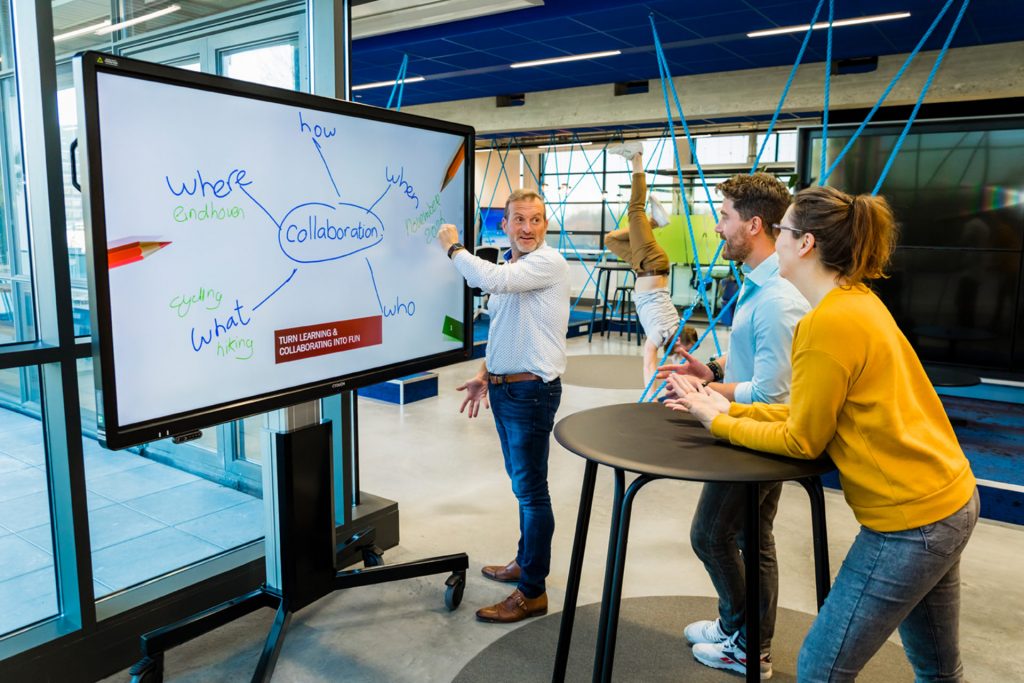 how
where
eindhoven
when
november
Collaboration
cycling
what
hiking
who
TURN LEARNING &
COLLABORATING INTO FUN